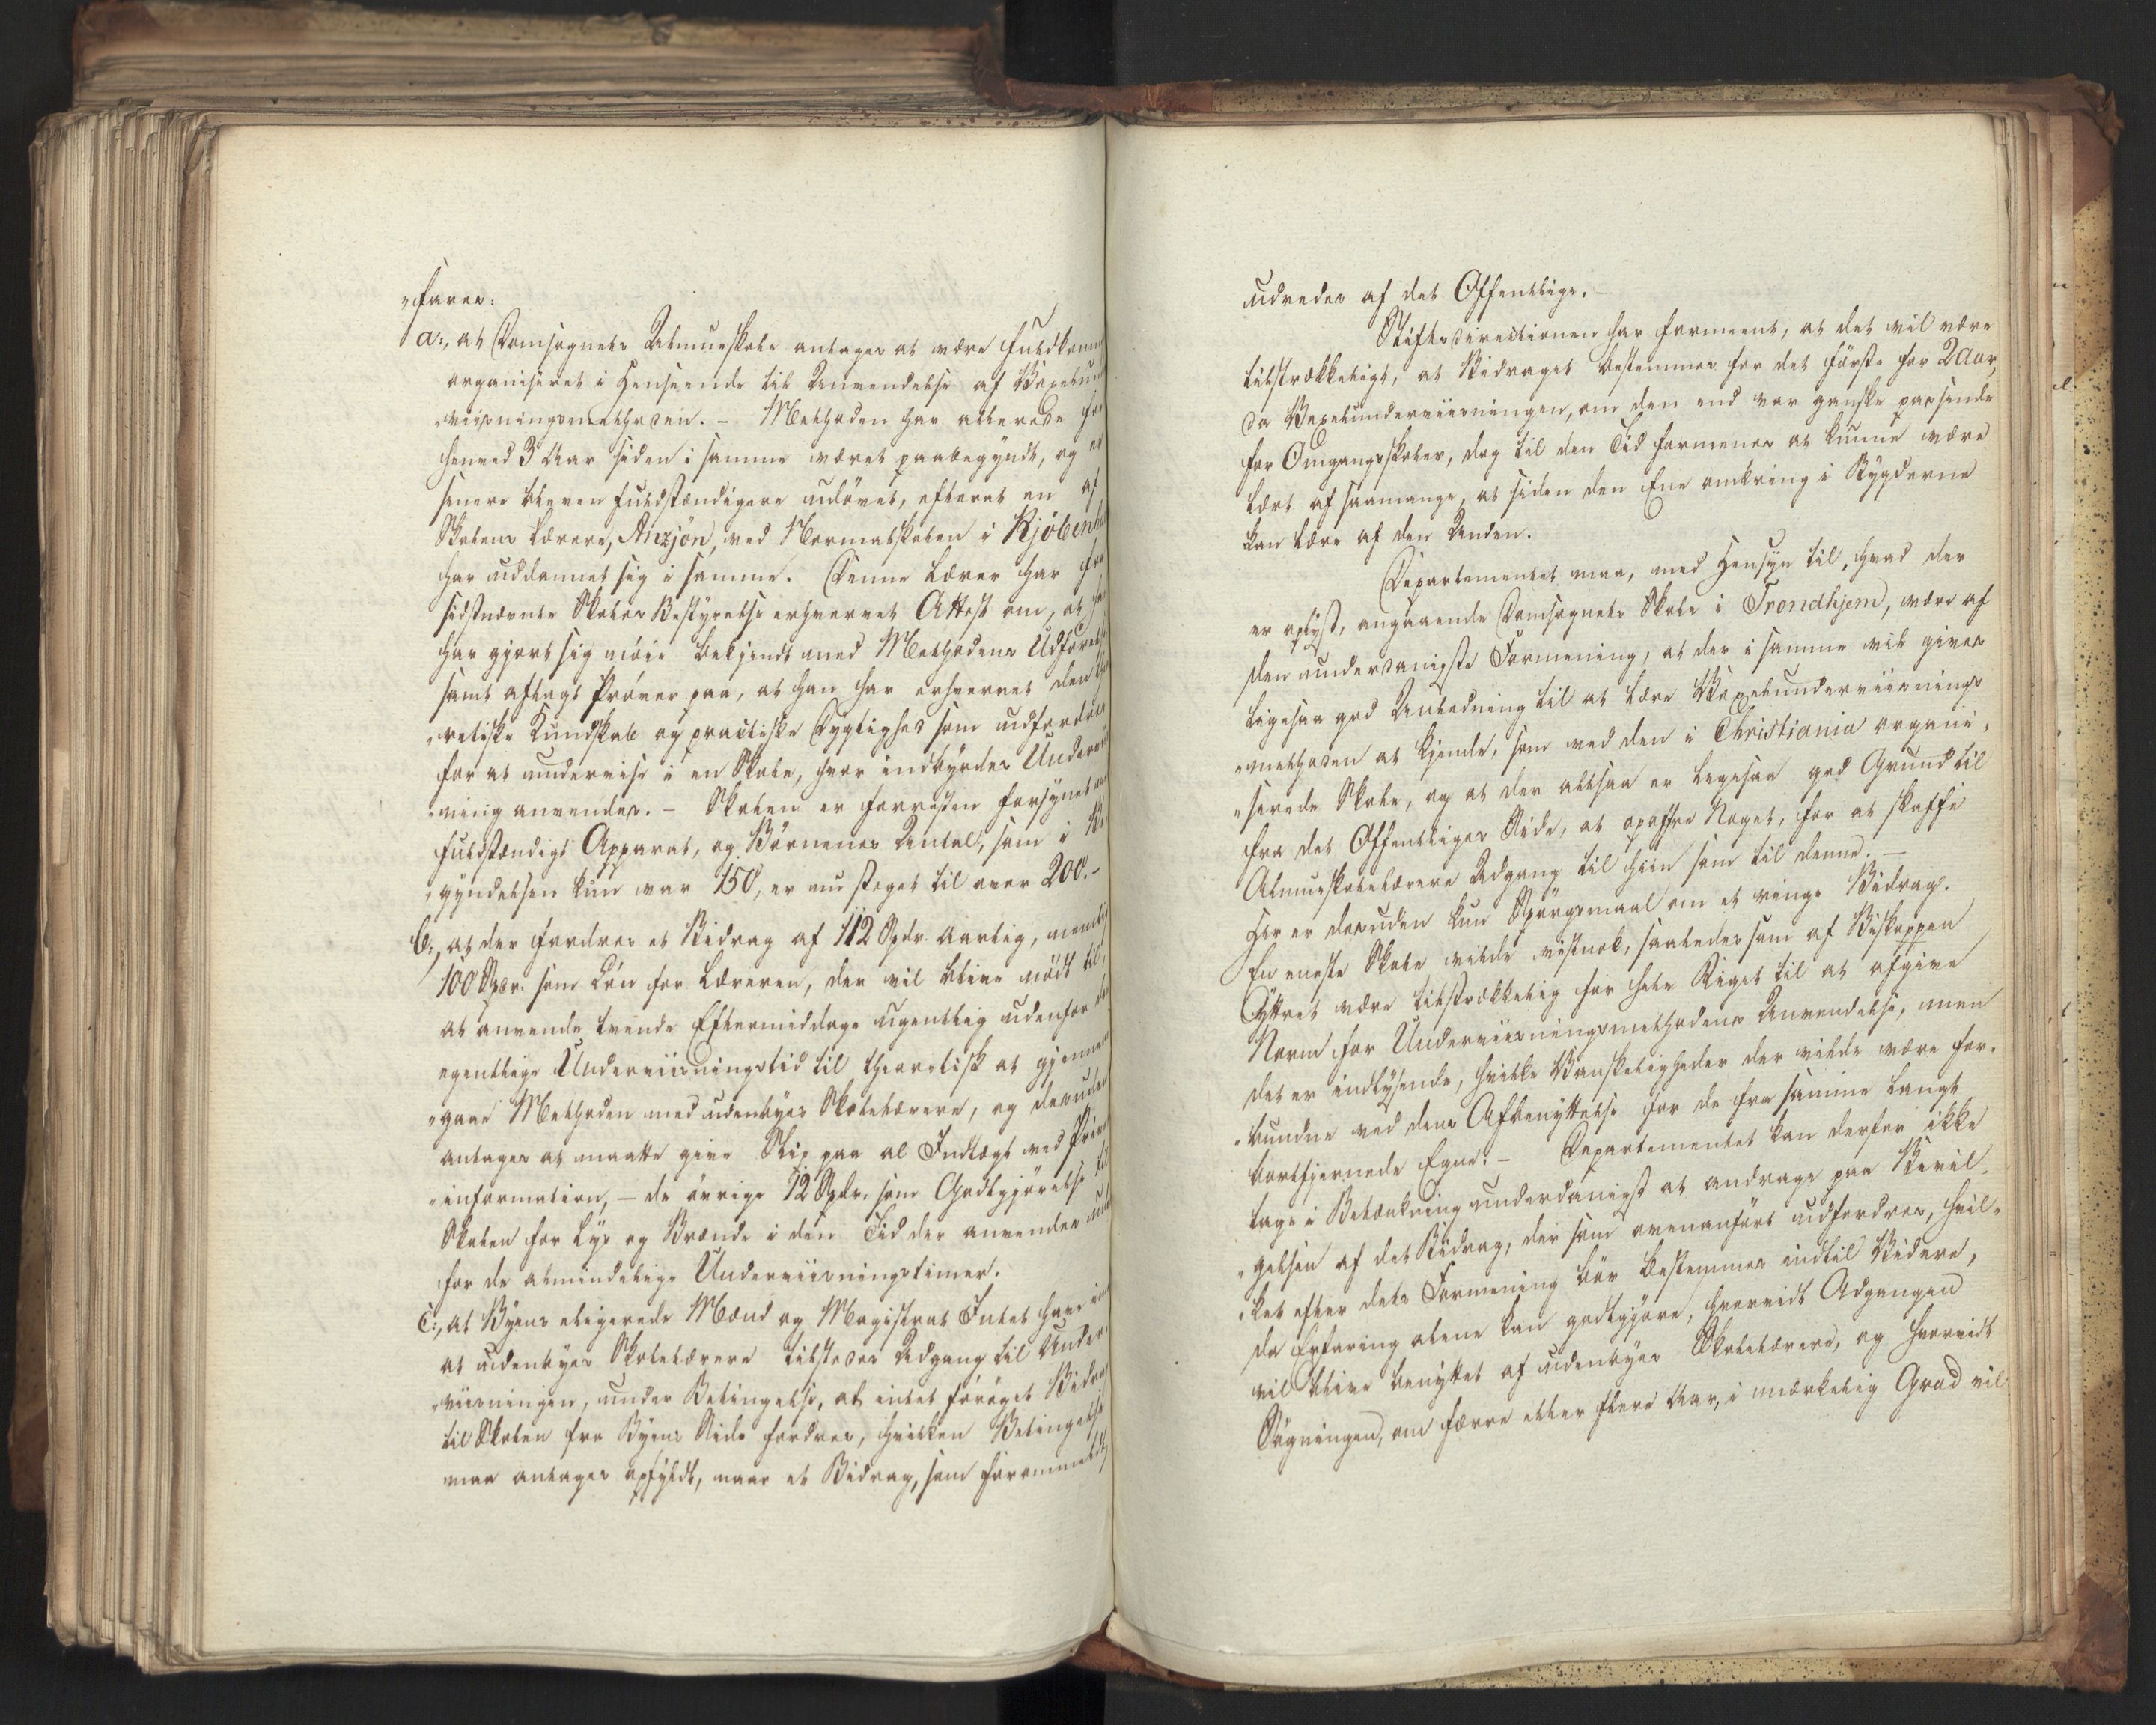 "farer:
a:, at Domsognets Almueskole antages at være fuldkomm
organiseret i Henseende til Anvendelse af Vexelund
"viisningsmethoden. - Methoden har allerede for
henved 3 Aar siden i samme været paabegyndt, og er
senere bleven fuldstændigere udövet, efterat en af
Skolens Lærere, Anzjön, ved Normalskolen i Kjöbenh
har uddannet sig i samme. Denne Lærer har fra
sidstnævnte Skoles Bestyrelse erhvervet Attest om, at han
har gjort sig nöie bekjendt med Methodens Udförelse
samt aflagt Pröver paa, at han har erhvervet den theo
"retiske Kundskab og practiske Dygtighed som udfordres
for at undervise i en Skole, hvor indbyrdes Underviis
"ning anvendes. - Skolen er forresten forsynet med
fuldstændigt Apparat, og Börnenes Antal, som i Be
"gyndelsen kun var 150, er nu steget til over 200.-
b:, at der fordres et Bidrag af 112 Spdr. aarlig, nemlig
100 Spdr. som Lön for Læreren, der vil blive nödt til,
at anvende tvende Eftermiddage ugentlig udenfor den
egentlige Underviisningstid til theoretisk at gjennem
"gaae Methoden med udenbyes Skolelærere, og desuden
antages at maatte give Slip paa al Indtægt ved Privat
"information, - de övrige 12 Spdr. som Godtgjörelse til
Skolen for Lys og Brænde i den Tid der anvendes uden
for de almindelige Underviisningstimer.
c:, at Byens eligerede Mænd og Magistrat Intet have imod
at udenbyes Skolelærere tilstedes Adgang til Under
"viisningen, under Betingelse, at intet foröget Bidrag
til Skolen fra Byens Side fordres, hvilken Betingelse
maa antages opfyldt, naar et Bidrag, som forommeldt,
udredes af det Offentlige.-
Stiftsdirectionen har formeent, at det vil være
tilstrækkeligt, at Bidraget bestemmes for det förste for 2 Aar,
da Vexelunderviisningen, om den end var ganske passende
for Omgangsskoler, dog til den Tid formenes at kunne være
lært af saamange, at siden den Ene omkring i Bygderne
kan lære af den Anden.
Departementet maa, med Hensyn til, hvad der
er oplyst, angaaende Domsognets Skole i Trondhjem, være af
den underdanigste Formening, at der i samme vil gives
ligesaa god Anledning til at lære Vexelunderviisnings
"methoden at kjende, som ved den i Christiania organi"
"serede Skole, og at der altsaa er ligesaa god Grund til
fra det Offentliges Side, at opoffre Noget, for at skaffe
Almueskolelærere Adgang til hiin som til denne. -
Her er desuden kun Spörgsmaal om et ringe Bidrag.
En eneste Skole vilde vistnok, saaledes som af Biskoppen
yttret være tilstrækkelig for hele Riget til at afgive
Norm for Underviisningsmethodens Anvendelse, men
det er indlysende, hvilke Vanskeligheder der vilde være for"
"bundne ved dens Afbenyttelse for de fra samme langt
bortfjernede Egne. - Departementet kan derfor ikke
tage i Betænkning underdanigst at andrage paa Bevil"
"gelsen af det Bidrag, der som ovenanfört udfordres, hvil"
"ket efter dets Formening bör bestemmes indtil Videre,
da Erfaring alene kan godtgjöre, hvorvidt Adgangen
vil blive benyttet af udenbyes Skolelærere, og hvorvidt
Sögningen, om færre eller flere Aar, i mærkelig Grad vil